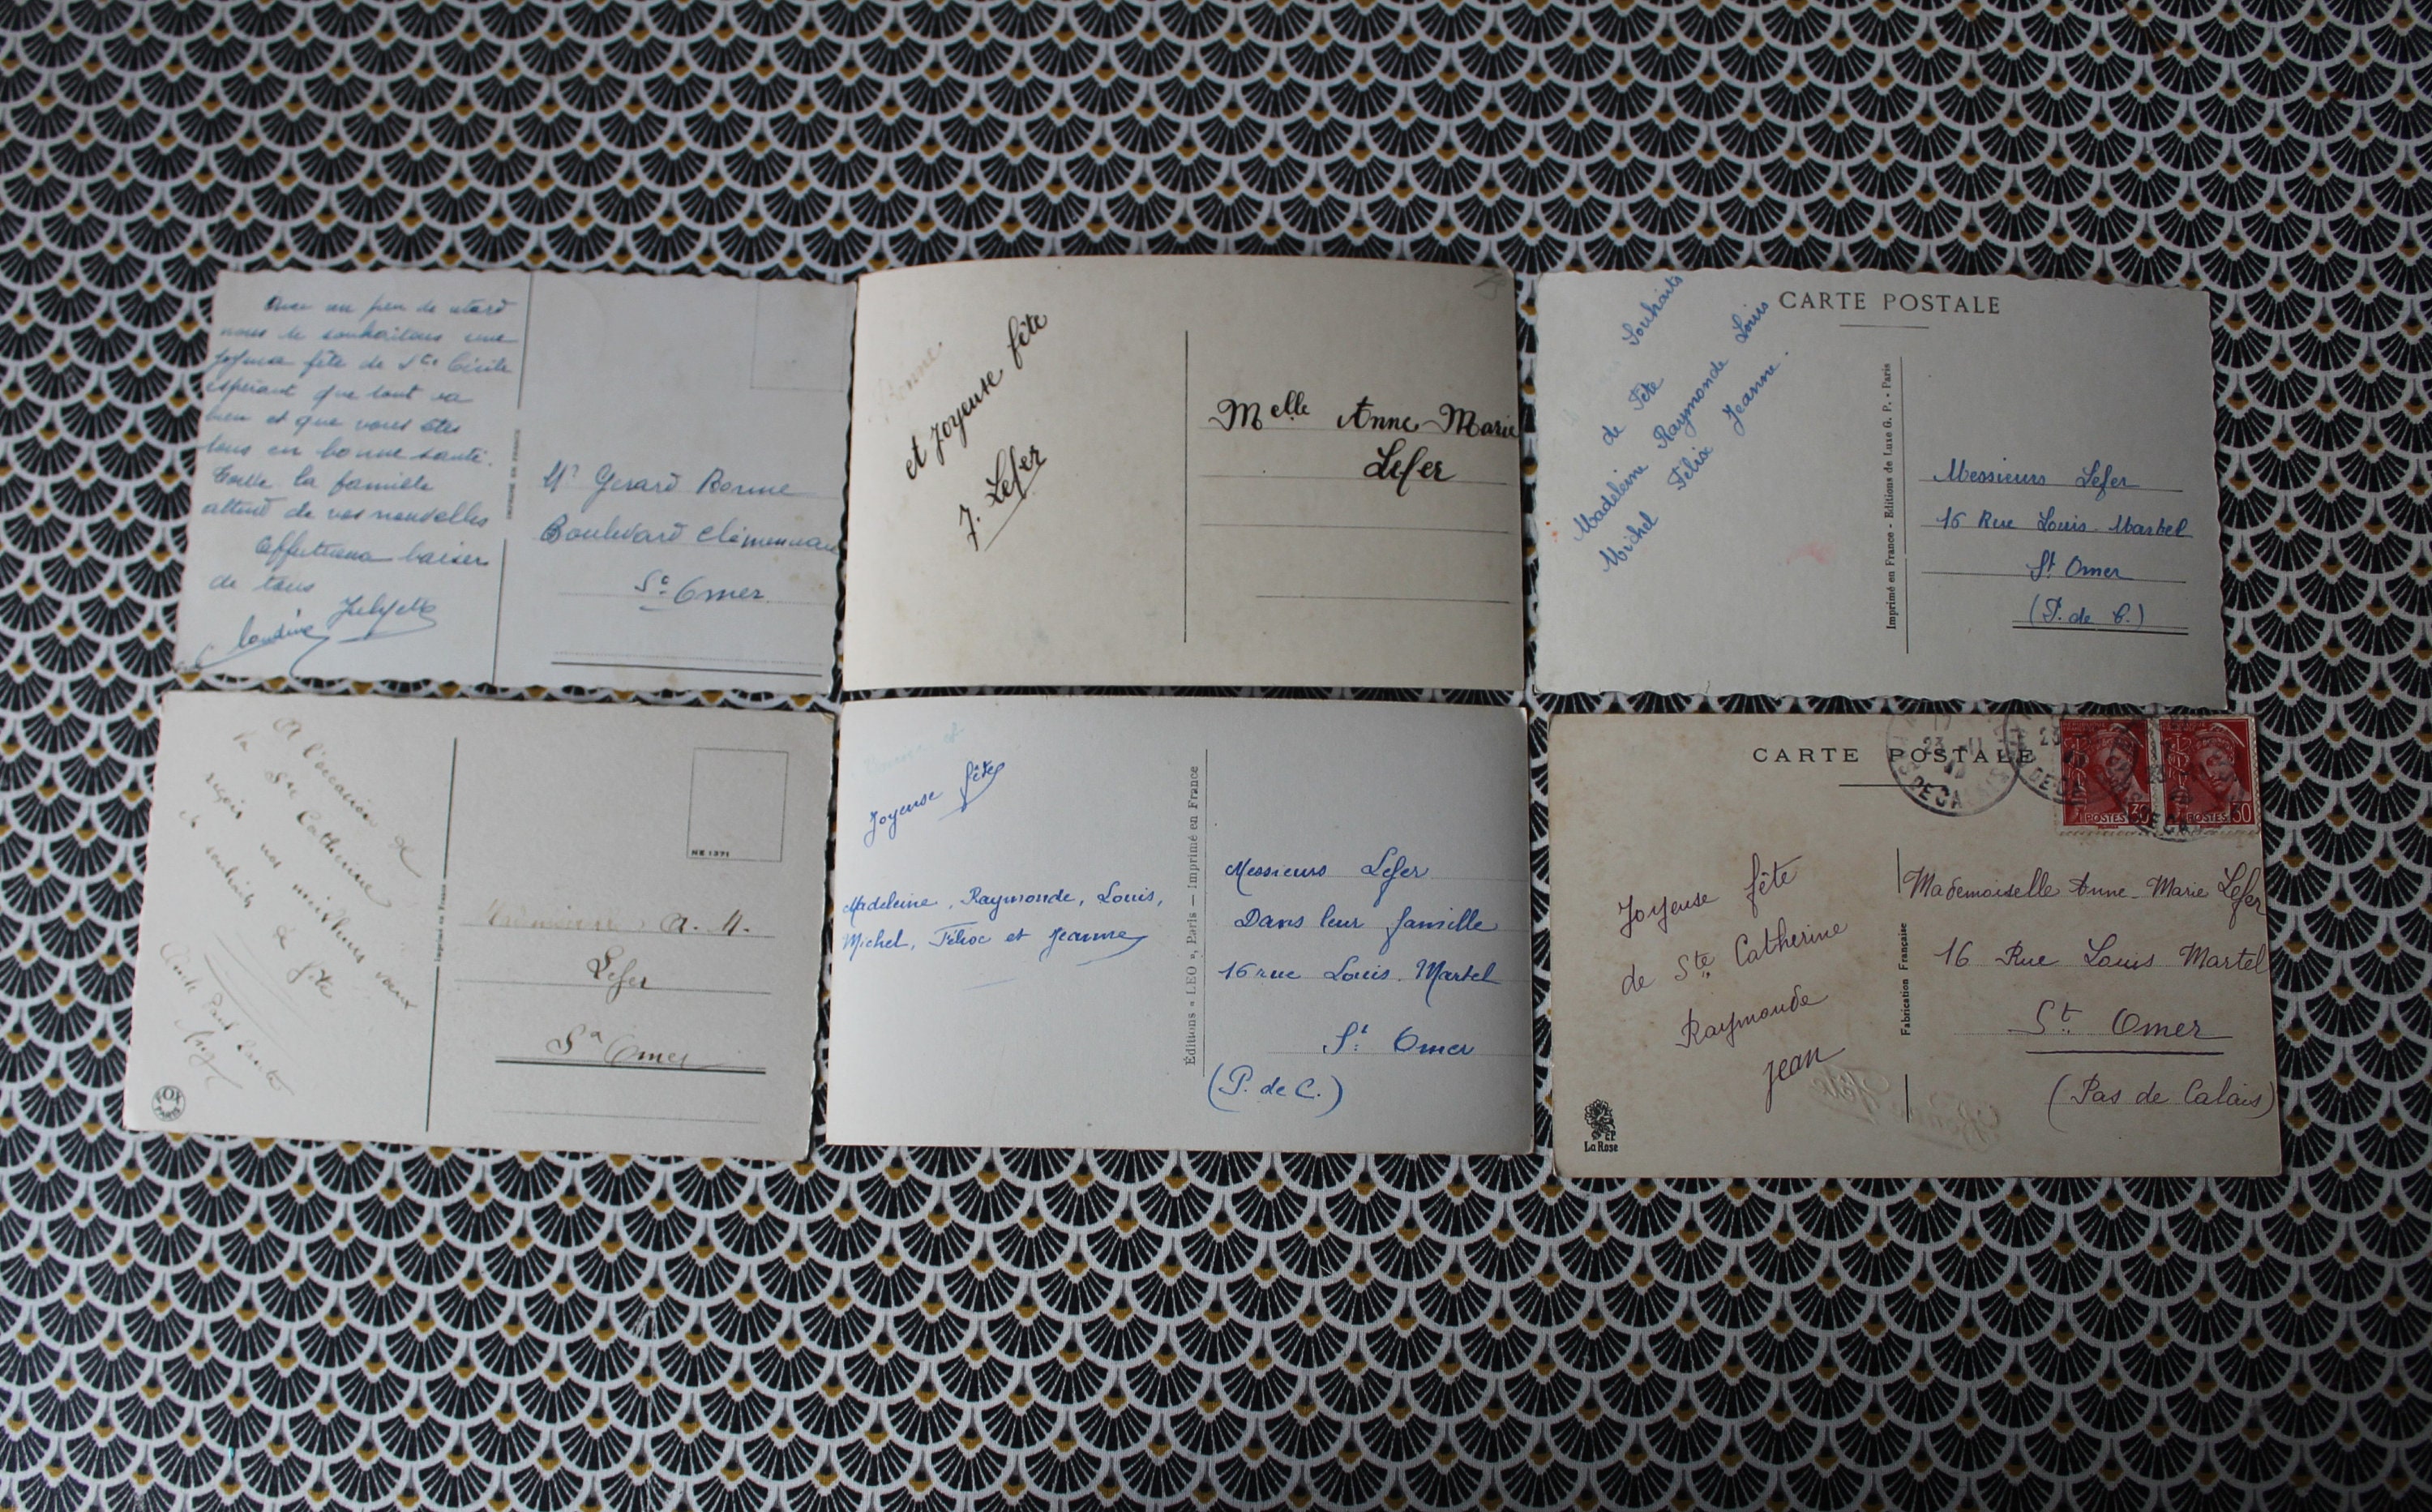 Avec un peu de retard
nous te souhaitons une
joyeuse fête de Ste Cécile
espérant que tout va
bien et que vous êtes
tous en bonne santé.
Toute la famille
attend de vos nouvelles
Affectueux baisers
de tous
IMPRIMÉ EN FRANCE
Mr Gérard
Boulevard Clémenceau
St Omer
Bonne
et joyeuse fête
J. Lefer
Melle Anne-Marie
Lefer
CARTE POSTALE
Souhaits
de Fête
Madeleine Raymonde Louis
Michel Félix Jeanne.
Imprimé en France - Editions de Luxe G. P. - Paris
Messieurs Lefer
16 Rue Louis Martel
St Omer
(P. de C.)
A l'occasion de
la Ste Catherine
reçois nos meilleurs vœux
et souhaits
de fête
FOX
PARIS
Imprimé en France
NE 1371
A. M.
Lefer
St Omer
Bonne et
Joyeuse fête
Madeleine, Raymonde, Louis,
Michel, Félix et Jeanne
Éditions « LEO », Paris — Imprimé en France
Messieurs Lefer
Dans leur famille
16 rue Louis Martel
St Omer
(P. de C.)
CARTE POSTALE
23 -11
DE CALAIS
POSTES 30
POSTES 30
Joyeuse fête
de Ste Catherine
Raymonde
Jean
La Rose
Fabrication Française
Mademoiselle Anne-Marie Lefer
16 Rue Louis Martel
St. Omer
(Pas de Calais)